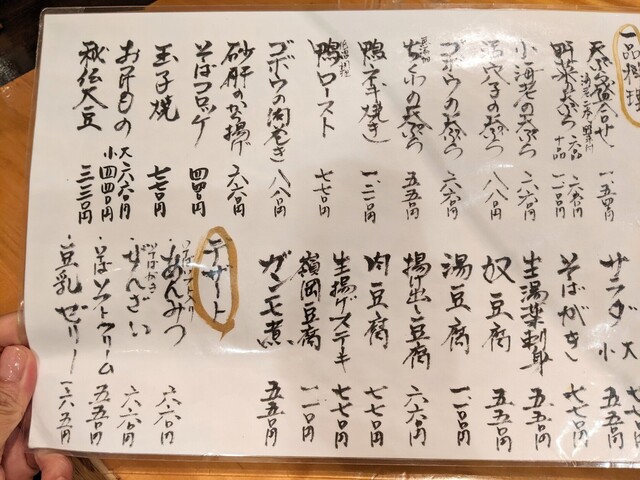 一品料理
天ぷら盛合せ 一、五四〇円
野菜天ぷら 六品 六六〇円
十品 一、一〇〇円
小海老の天ぷら 六六〇円
穴子の天ぷら 八八〇円
ゴボウの天ぷら 六六〇円
ちくわの天ぷら 五五〇円
鴨ネギ焼き 一、二一〇円
鴨ロースト 七七〇円
ゴボウの肉巻き 八八〇円
砂肝のから揚げ 六六〇円
そばコロッケ 四四〇円
玉子焼 七七〇円
おつけもの 大 六六〇円
小 四四〇円
秘伝大豆 三三〇円
サラダ 大
小 五五〇円
そばがき 七七〇円
生湯葉刺身 五五〇円
奴豆腐 五五〇円
湯豆腐 一、一〇〇円
揚げ出し豆腐 六六〇円
肉豆腐 七七〇円
生揚げステーキ 七七〇円
擬岡豆腐 一、一〇〇円
ガンモ煮 五五〇円
デザート
あんみつ 六六〇円
そばがき
ぜんざい 六六〇円
そばソフトクリーム 五五〇円
豆乳ゼリー 一六五円